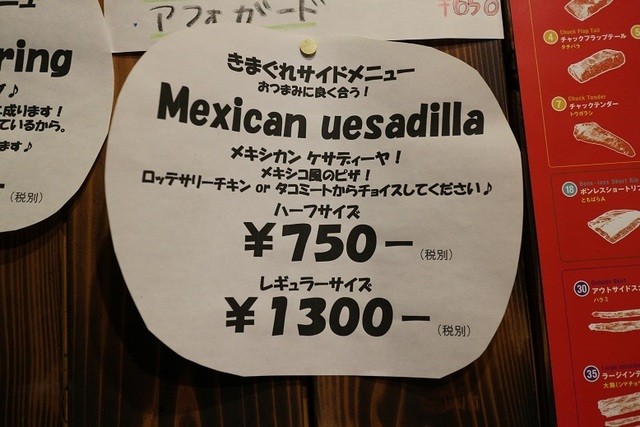 アフォガード
¥650
ring
♪
成ります！
ているから。
ます♪
(税別)
きまぐれサイドメニュー
おつまみに良く合う！
Mexican uesadilla
メキシカン ケサディーヤ！
メキシコ風のピザ！
ロッテサリーチキン or タコミートからチョイスしてください♪
ハーフサイズ
¥750－(税別)
レギュラーサイズ
¥1300－(税別)
4
Chuck Flap Tail
チャックフラップテール
タチバラ
5
7
Chuck Tender
チャックテンダー
トウガラシ
18
Bone-less Short Rib
ボンレスショートリブ
ともばら
30
Outside Skirt
アウトサイドス
ハラミ
35
ラージインテ
大腸(シマチョ